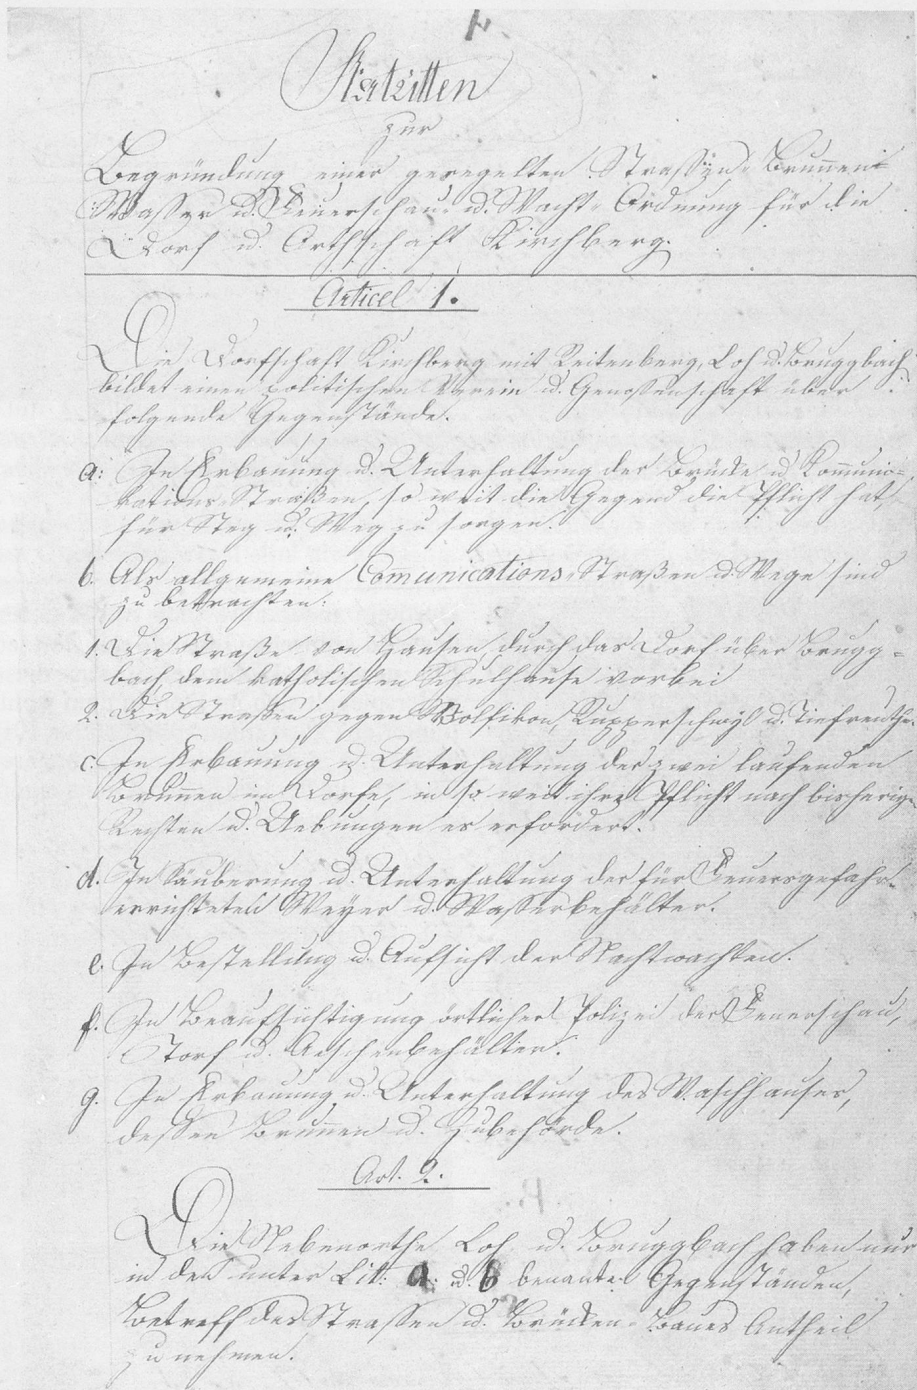 Statuten
zur
Begründung einer geregelten Strassen- Brunnen-
Wasser u. Feuerschau- u. Wacht-Ordnung für die
Dorf u. Orthschaft Kirchberg.
Articel 1.
Die Dorfschaft Kirchberg mit Reitenberg, Loh u. Bruggbach
bildet einen politischen Verein u. Genossenschaft über
folgende Gegenstände.
a: In Erbauung u. Unterhaltung der Brücke u. Kommuni-
kations-Straßen, so weit die Gegend die Pflicht hat,
für Steg u. Weg zu sorgen.
b. Als allgemeine Communications-Straßen u. Wege sind
zu betrachten:
1. Die Straße von Hausen durch das Dorf über Brugg-
bach dem katholischen Schulhause vorbei
2. Die Straßen gegen Wolfikon, Rupperschwyl u.
c. In Erbauung u. Unterhaltung der zwei laufenden
Brunnen im Dorfe, in so weit ihre Pflicht nach bisherigen
Rechten u. Uebungen es erfordert.
d. In Säuberung u. Unterhaltung der für Feuersgefahr
errichteten Weyer u. Wasserbehälter.
e. In Bestellung u. Aufsicht der Nachtwachten.
f. In Beaufsichtigung örtlicher Polizei der Feuerschau,
Torf u. Aschenbehälter.
g. In Erbauung u. Unterhaltung des Waschhauses,
dessen Brunnen u. Zubehörde.
Art. 2.
Die Nebenorthe Loh u. Bruggbach haben nur
in den unter Litt: a. u. b benanten Gegenständen,
Betreff des Strassen u. Brücken-Baues Antheil
zu nehmen.